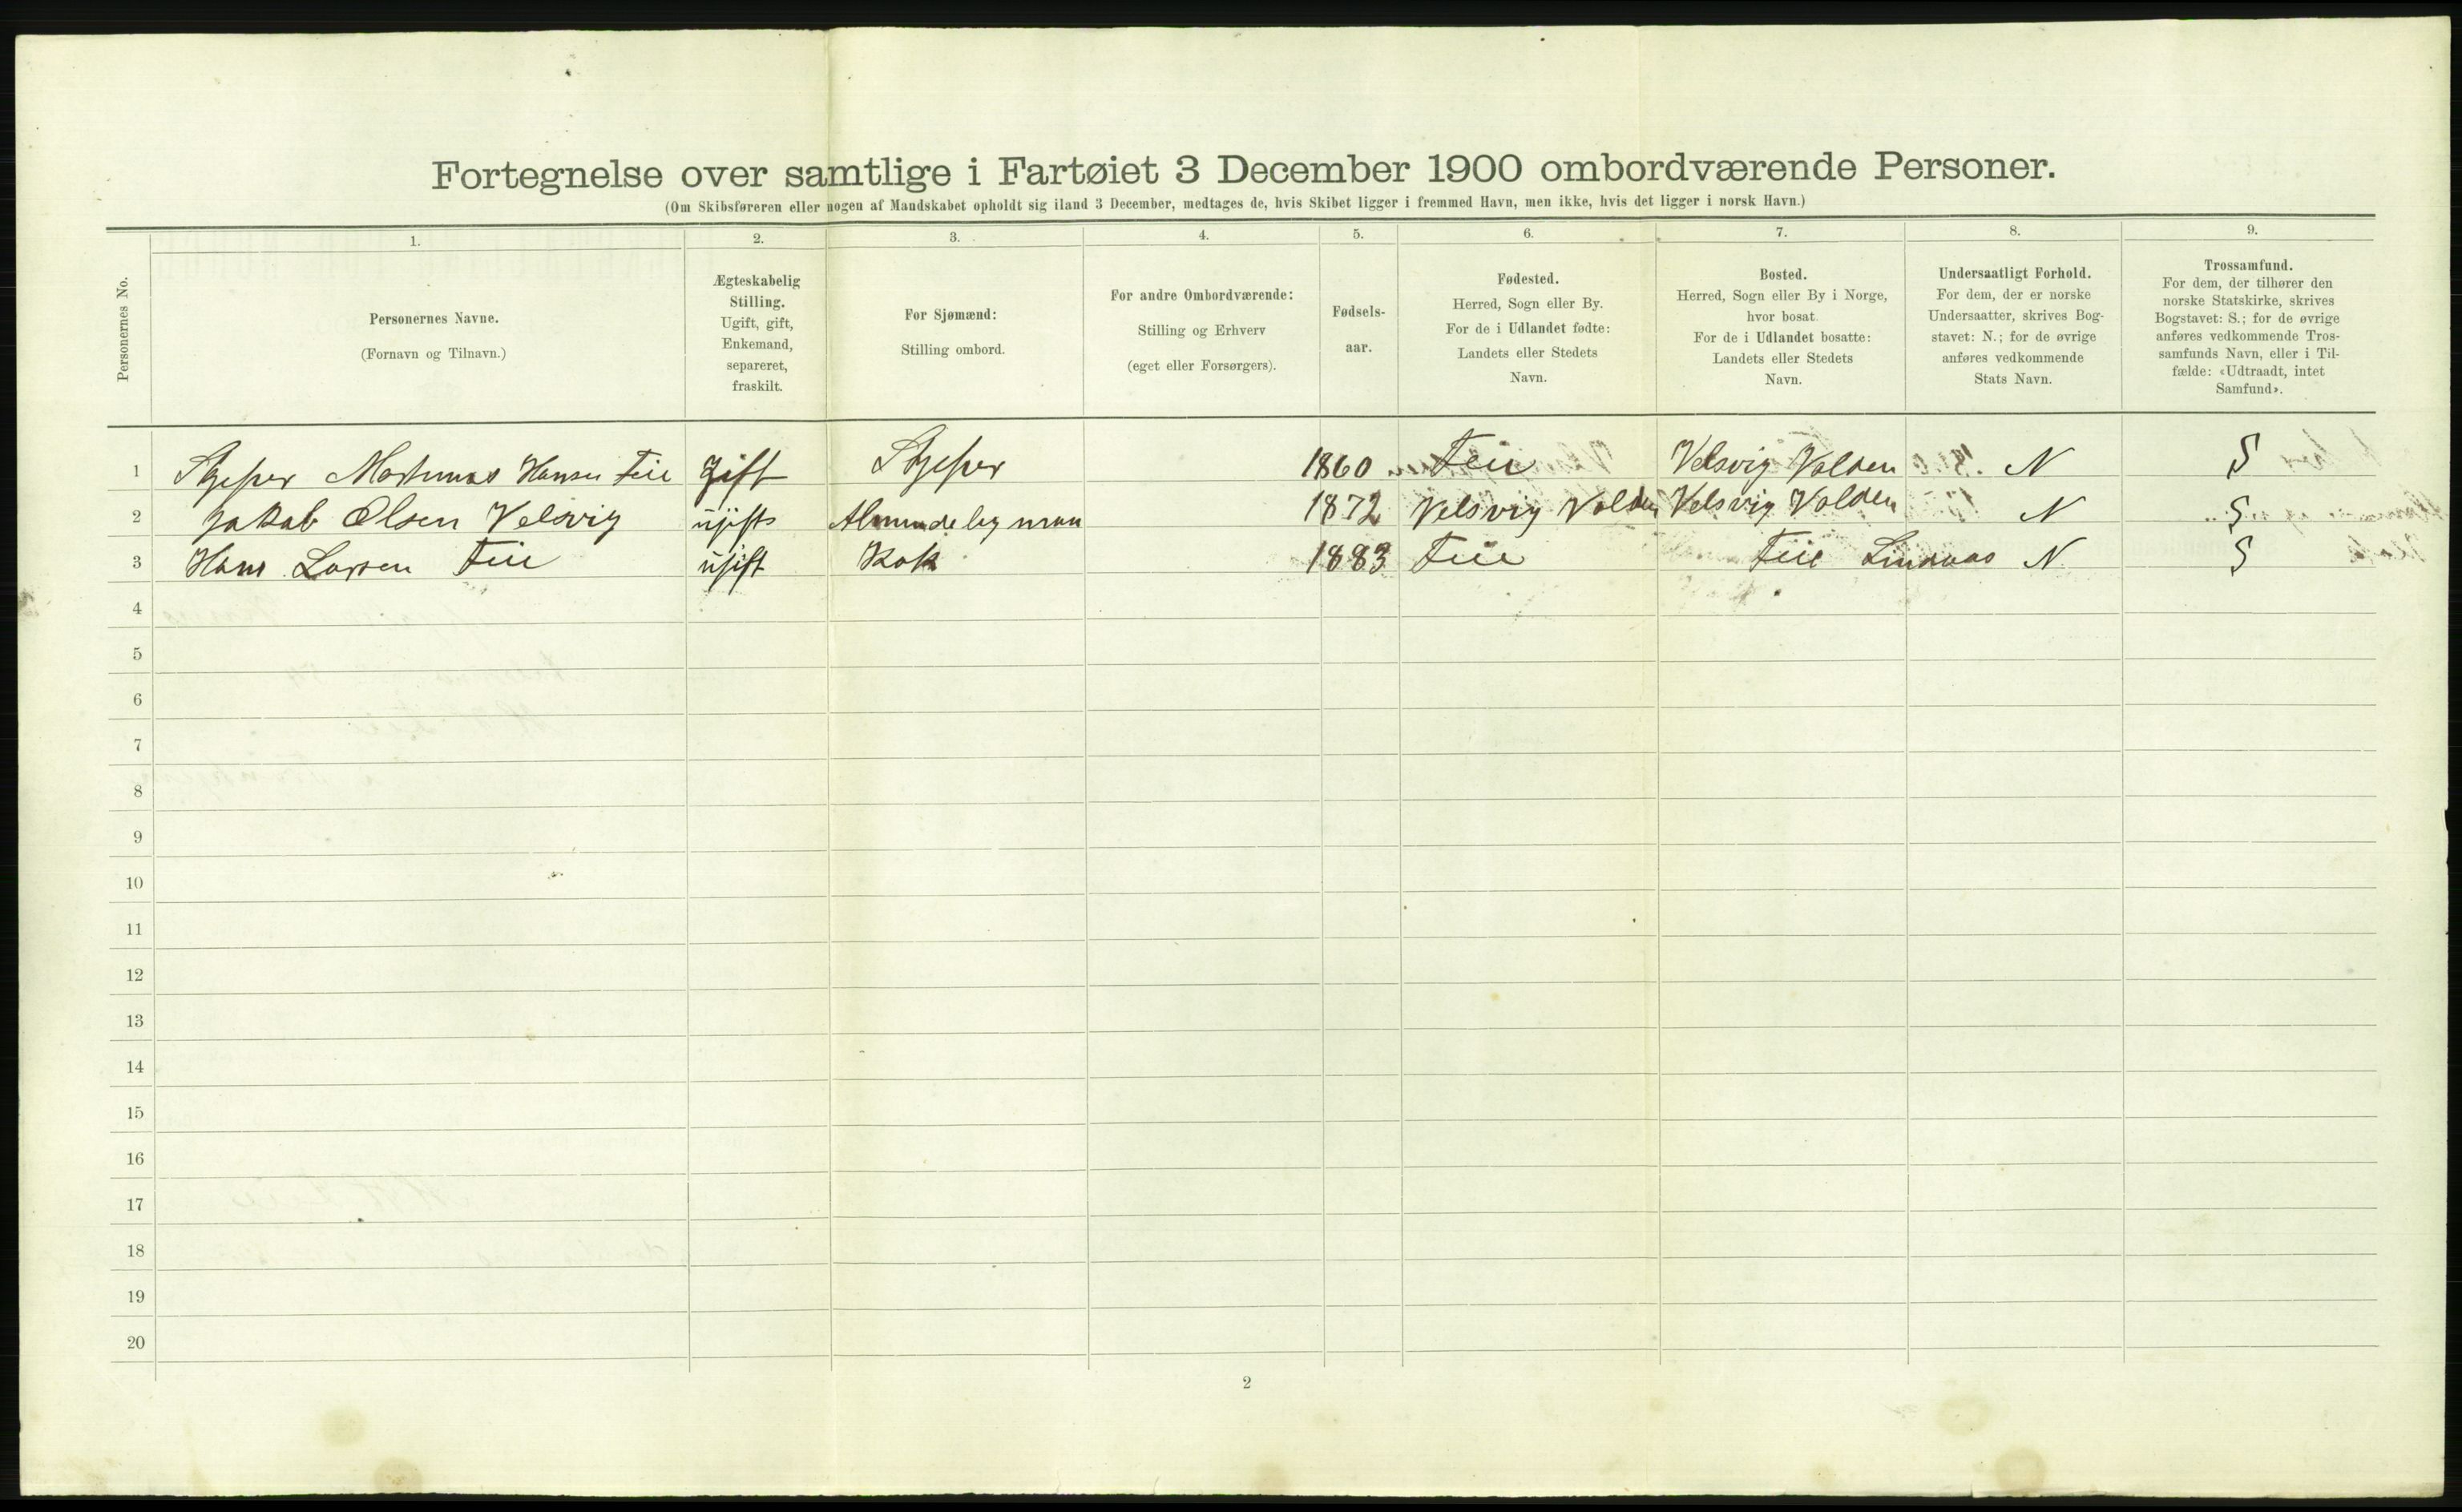 Fortegnelse over samtlige i Fartøiet 3 December 1900 ombordværende Personer.
(Om Skibsføreren eller nogen af Mandskabet opholdt sig iland 3 December, medtages de, hvis Skibet ligger i fremmed Havn, men ikke, hvis det ligger i norsk Havn.)
Personernes No.
1.
Personernes Navne.
(Fornavn og Tilnavn.)
2.
Ægteskabelig
Stilling.
Ugift, gift,
Enkemand,
separeret,
fraskilt.
3.
For Sjømænd:
Stilling ombord.
4.
For andre Ombordværende:
Stilling og Erhverv
(eget eller Forsørgers).
5.
Fødsels-
aar.
6.
Fødested.
Herred, Sogn eller By.
For de i Udlandet fødte:
Landets eller Stedets
Navn.
7.
Bosted.
Herred, Sogn eller By i Norge,
hvor bosat.
For de i Udlandet bosatte:
Landets eller Stedets
Navn.
8.
Undersaatligt Forhold.
For dem, der er norske
Undersaatter, skrives Bog-
stavet: N.; for de øvrige
anføres vedkommende
Stats Navn.
9.
Trossamfund.
For dem, der tilhører den
norske Statskirke, skrives
Bogstavet: S.; for de øvrige
anføres vedkommende Tros-
samfunds Navn, eller i Til-
fælde: «Udtraadt, intet
Samfund».
1 Martinus Hansen Feie gift 1860 Feie Velsvig Volden N S
2 Jakob Olsen Velsvig ugift Almindeligmann 1872 Velsvig Volden Velsvig Volden N S
3 Hans Larsen Feie ugift Kok 1883 Feie Feie Linaaas N S
4
5
6
7
8
9
10
11
12
13
14
15
16
17
18
19
20
2